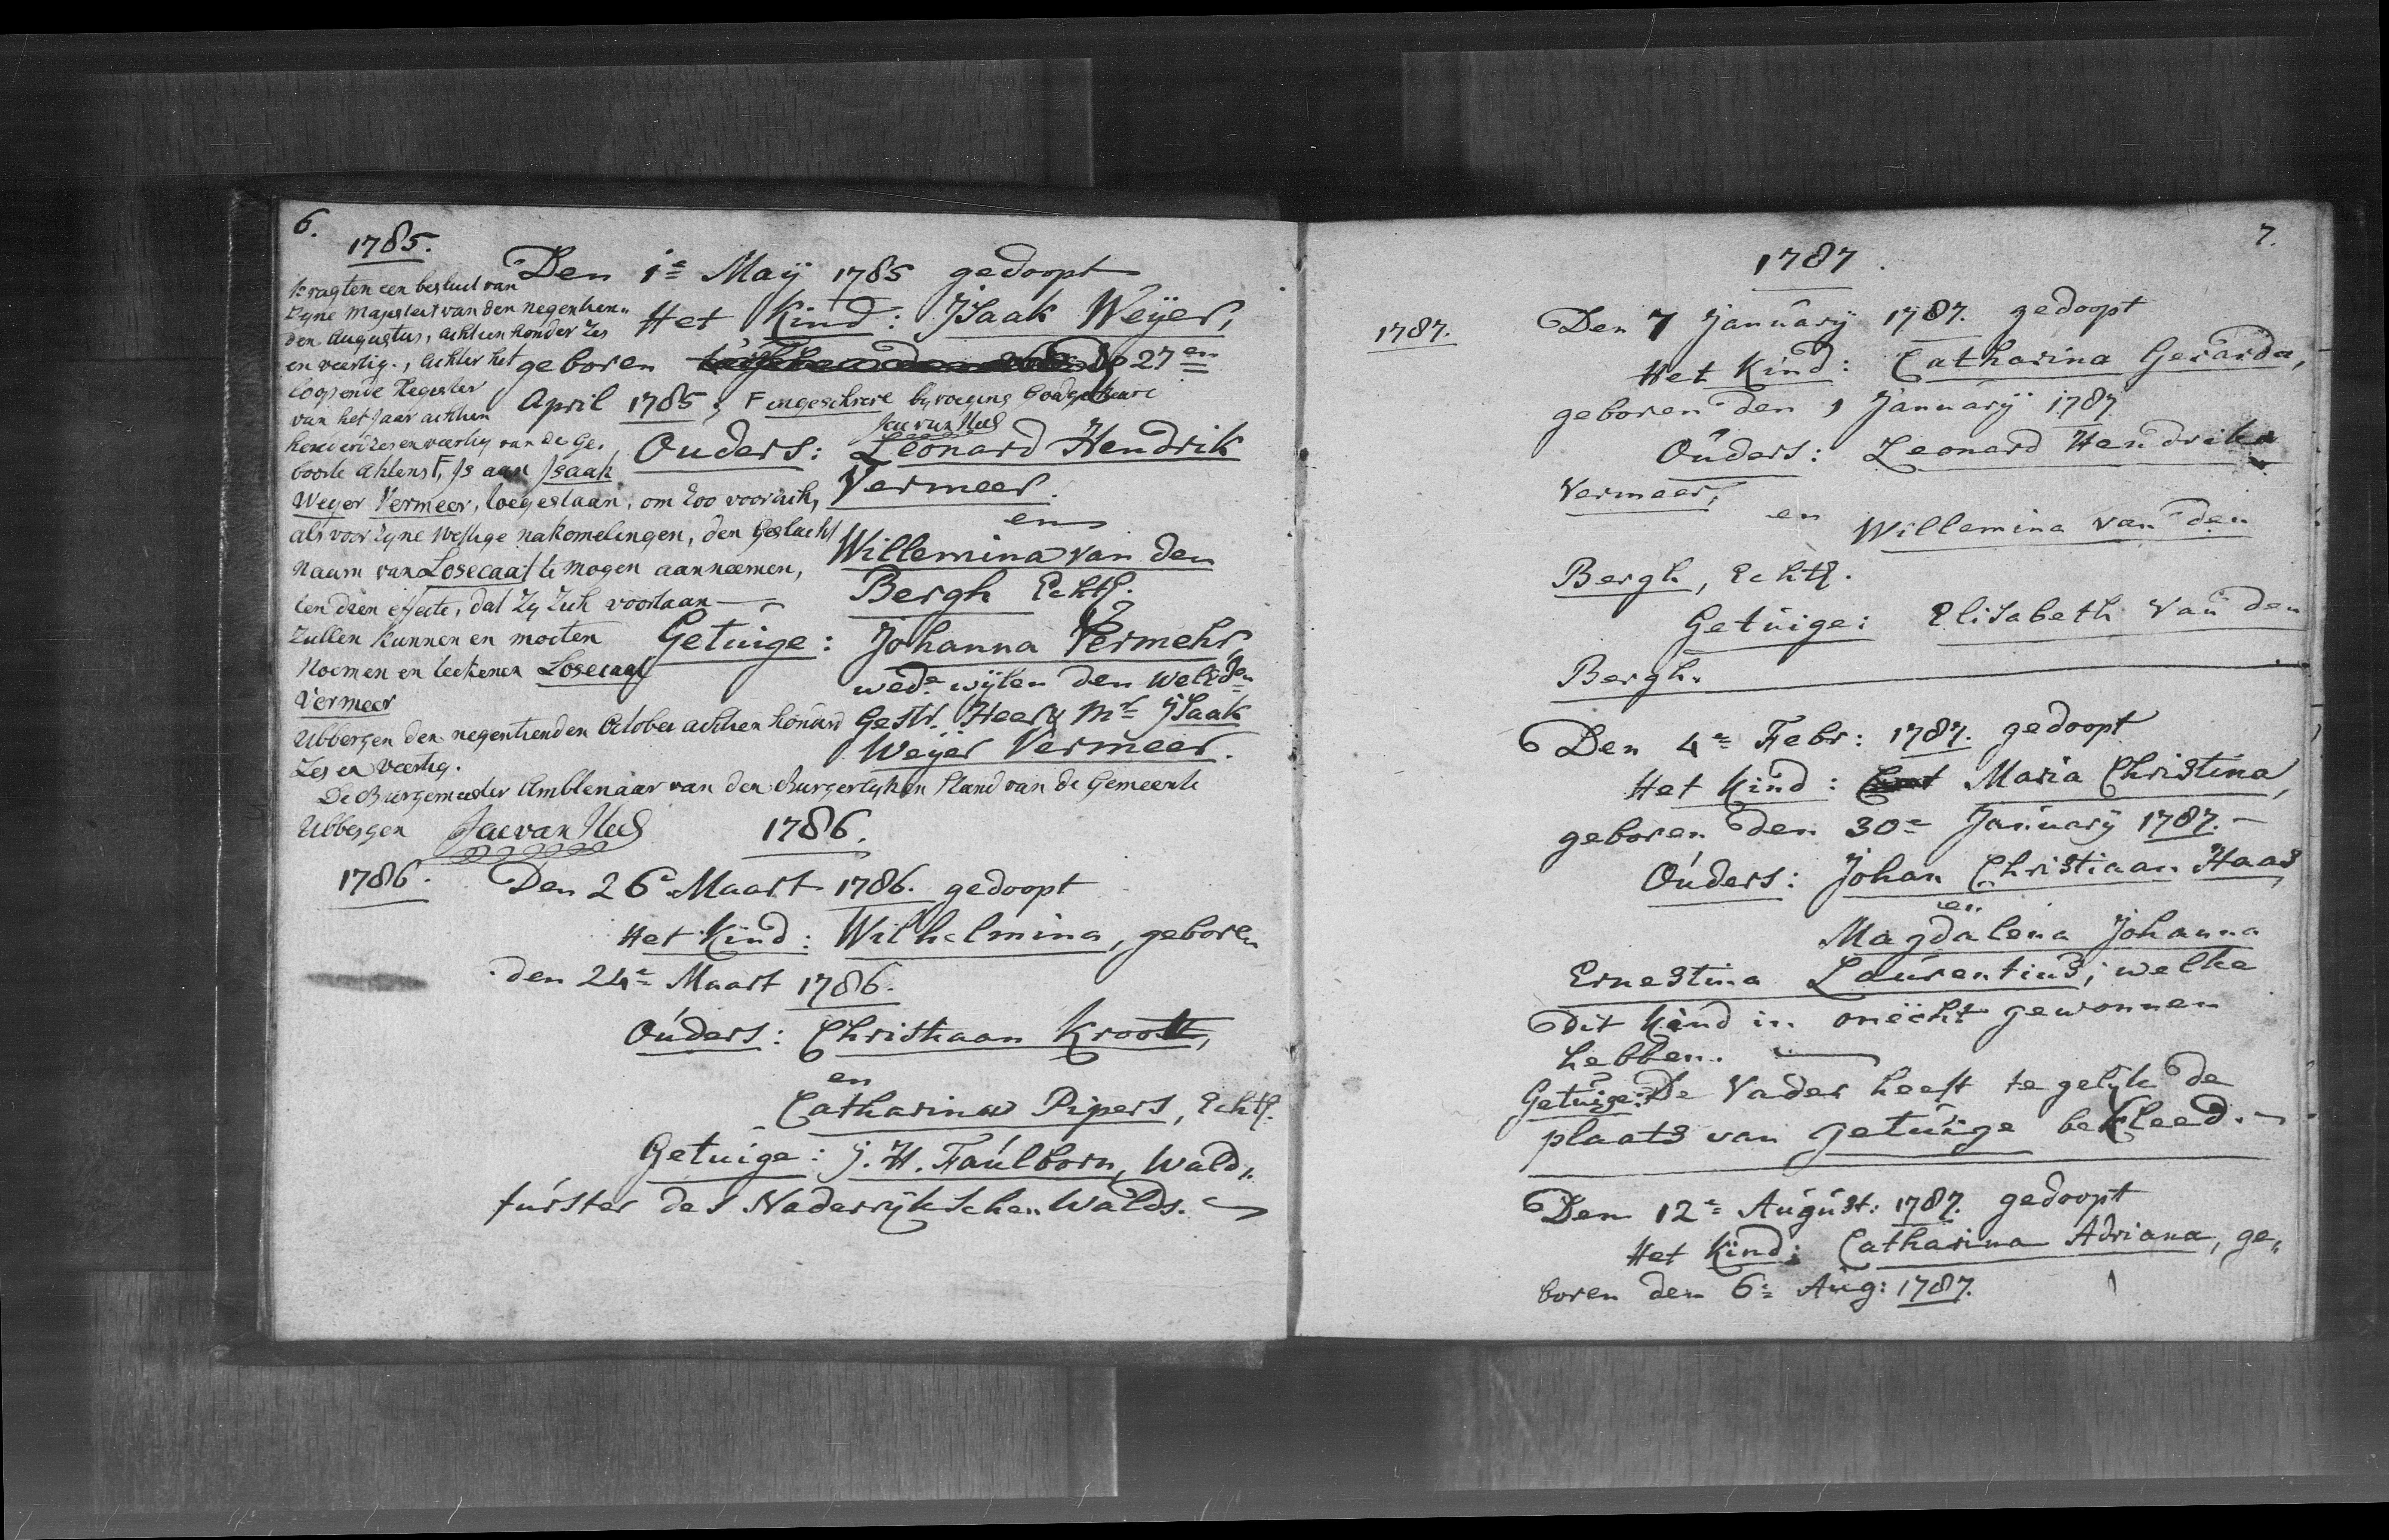 6.
1785.
Den 1e Maÿ 1785 gedoopt
Het Kind: JSaak Weÿer,
geboren de 27en
April 1785;
Ouders: Leonard Hendrik
Vermeer.
en
Willemina van den
Bergh Echtl.
Getuige: Johanna Vermehr,
wede wijlen den
Gestr. Heere Mr JSaak
Weÿer Vermeer.
Kragten een besluit van
Zyne Majesteit van den negentien„
den Augustus, achtien honder zes
en veertig., achter het
loopende Register
van het Jaar achtien
honderd zes en veertig van de Ge.
boorte Aktens F, Js aan Jsaak
Weyer Vermeer, toegestaan, om zoo voor zich,
als voor zyne wettige nakomelingen, den Geslacht
Naam van Losecaat te mogen aanneemen,
ten dien effecte, dat zy zich voortaan
Zullen Kunnen en moeten
Noemen en teekenen Losecaat
Vermeer
Ubbergen den negentienden October achtien honderd
Zes en Veertig.
De Burgemeester Ambtenaar van den Burgerlyken Stand van de Gemeente
Ubbergen
F ingeschreve
1786.
1786.
Den 26e Maart 1786. gedoopt
Het Kind: Wilhelmina, geboren
den 24e Maart 1786.
Ouders: Christiaan Kroott,
en
Catharina Pipers, Echtl.
Getuige: J. H. Faulborn, Wald„
furster des Nederrÿkschen Walds.
7.
1787.
1787.
Den 7 Januarÿ 1787. gedoopt
Het Kind: Catharina Gerarda,
geboren den 1 Januarÿ 1787
Ouders: Leonard Hendrik
Vermeer,
en
Willemina van den
Bergh, Echtl.
Getuige: Elisabeth van den
Bergh.
Den 4e Febr: 1787. gedoopt
Het Kind: Maria Christina,
geboren den 30e Januarÿ 1787.
Ouders: Johan Christiaan Haas
en
Magdalena Johanna
Ernestina Laurentius; welke
dit Kind in onëcht gewonnen
hebben.
Getuige: De Vader heeft te gelÿk de
plaats van getuige bekleed.
Den 12e August: 1787. gedoopt
Het Kind: Catharina Adriana, ge„
boren den 6e Aug: 1787.